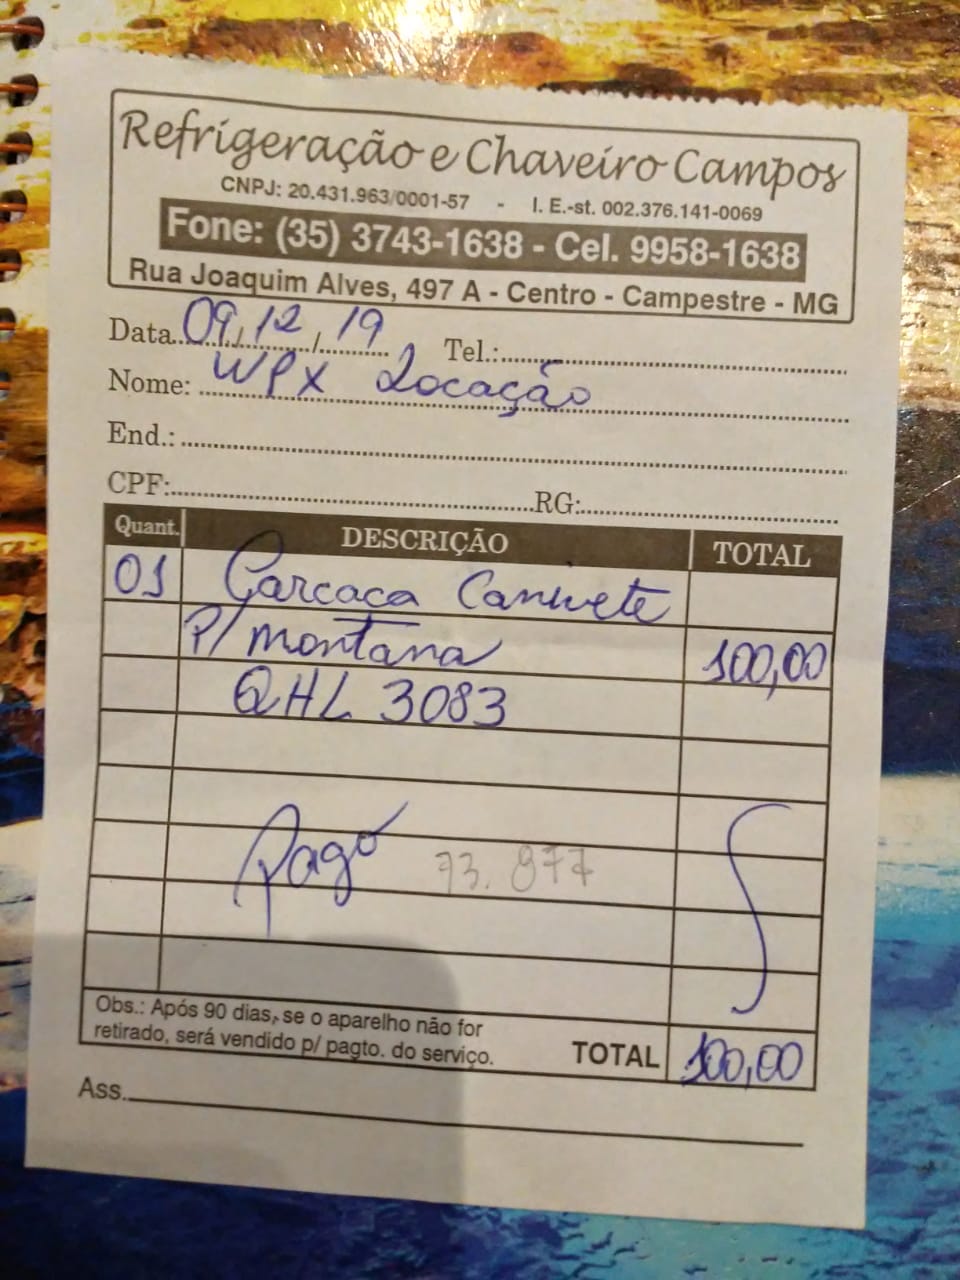 Refrigeração e Chaveiro Campos
CNPJ: 20.431.963/0001-57 - I. E.-st. 002.376.141-0069
Fone: (35) 3743-1638 - Cel. 9958-1638
Rua Joaquim Alves, 497 A - Centro - Campestre - MG
Data 09/12/19 Tel.:
Nome: WPX Locação
End.:
CPF: RG:
Quant. DESCRIÇÃO TOTAL
01 Carcaça Canivete
P/ montana 100,00
QHL 3083
Pago 73.877
Obs.: Após 90 dias, se o aparelho não for
retirado, será vendido p/ pagto. do serviço. TOTAL 100,00
Ass.